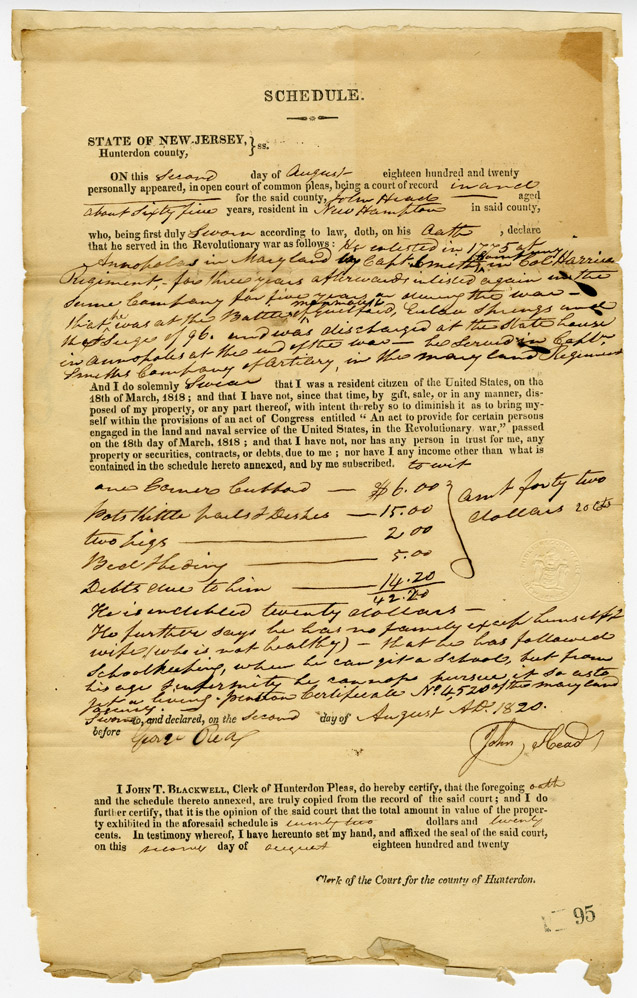 SCHEDULE.
STATE OF NEW-JERSEY, } ss.
Hunterdon county,
ON this Second day of August eighteen hundred and twenty
personally appeared, in open court of common pleas, being a court of record in and
for the said county, John Head aged
about Sixty five years, resident in New Hampton in said county,
who, being first duly Sworn according to law, doth, on his Oath, declare
that he served in the Revolutionary war as follows: He enlisted in 1775 at
Annopolas in Maryland in Capt. Smiths in Col. Harrica
Regiment for three years afterwards inlisted again in the
Same Company for five years or during the war
that he was at the Battle of Guilford, Eutaw Springs and
the Seige of 96. and was discharged at the State house
in annapolis at the end of the war - he Served in Captn
Smiths Company of Artilery, in the mary land Regiment
And I do solemnly Swear that I was a resident citizen of the United States, on the
18th of March, 1818; and that I have not, since that time, by gift, sale, or in any manner, dis-
posed of my property, or any part thereof, with intent thereby so to diminish it as to bring my-
self within the provisions of an act of Congress entitled "An act to provide for certain persons
engaged in the land and naval service of the United States, in the Revolutionary war," passed
on the 18th day of March, 1818; and that I have not, nor has any person in trust for me, any
property or securities, contracts, or debts, due to me; nor have I any income other than what is
contained in the schedule hereto annexed, and by me subscribed. to wit
one Corner Cubbord — $6.00
Pots Kittle pails & Dishes — 15.00
two pigs — 2.00
Bed & beding — 5.00
Debts due to him — 14.20
42.20
amt forty two
dollars 20 Cts
He is indebted twenty dollars —
He further says he has no family except himself &
wife (who is not healthy) — that he has followed
Schoolkeeping, when he can git a School, but from
his age & infirmity he cannot pursue it so as to
get a living. pension Certificate No 4520 of the maryland
agency.
Sworn to, and declared, on the Second day of August AD. 1820.
before George Rea
John Head
I JOHN T. BLACKWELL, Clerk of Hunterdon Pleas, do hereby certify, that the foregoing oath
and the schedule thereto annexed, are truly copied from the record of the said court; and I do
further certify, that it is the opinion of the said court that the total amount in value of the proper-
ty exhibited in the aforesaid schedule is twenty two dollars and twenty
cents. In testimony whereof, I have hereunto set my hand, and affixed the seal of the said court,
on this second day of august eighteen hundred and twenty
Clerk of the Court for the county of Hunterdon.
95